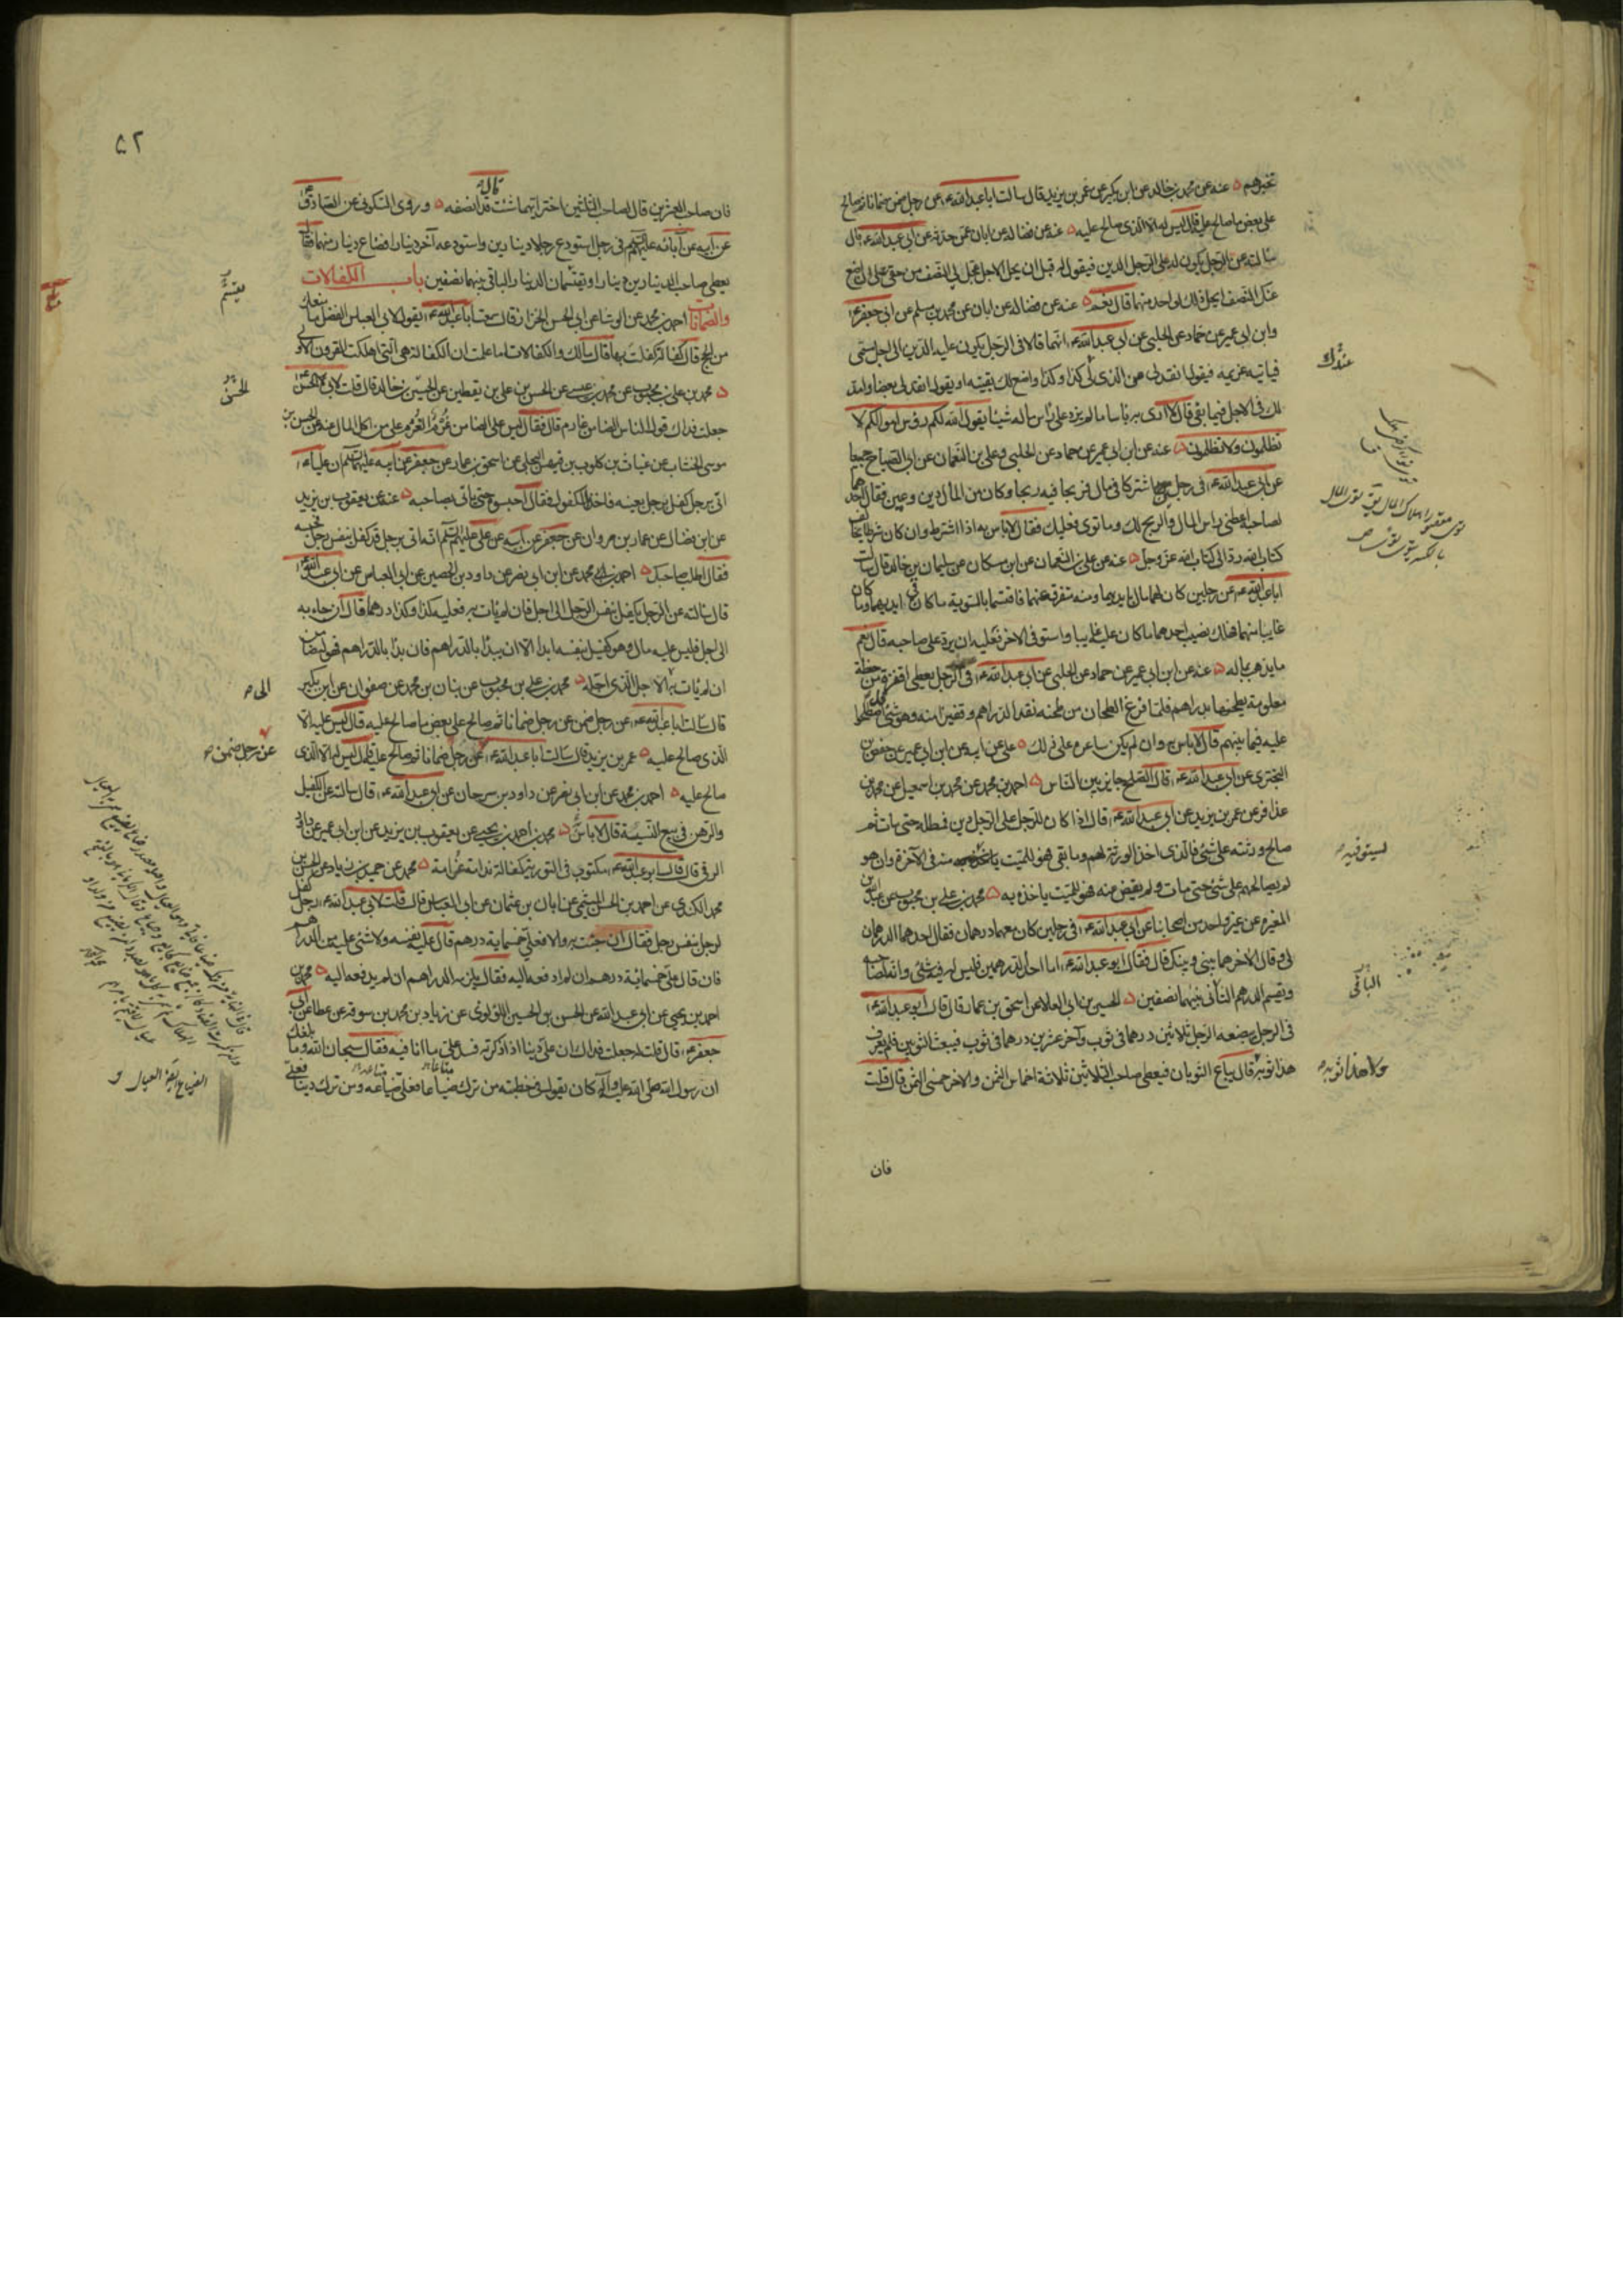 تخيرهم عنه عن محمد بن خالد عن ابن بكير عن عمر بن يزيد قال سالت ابا عبد الله ع عن رجل ضمن ضمانا ثم صالح
على بعض ما صالح عليه قال ليس له الا الذى صالح عليه عنه عن فضاله عن ابان عمن حدثه عن ابى عبد الله ع قال
سالته عن الرجل يكون له على الرجل الدين فيقول له قبل ان يحل الاجل عجل لى النصف من حقى على ان اضع
عنك النصف ايحل ذلك لواحد منهما قال نعم عنه عن فضاله عن ابان عن محمد بن مسلم عن ابى جعفر ع
وابن ابى عمير عن حماد عن الحلبى عن ابى عبد الله ع انهما قالا فى الرجل يكون عليه الدين الى اجل مسمى
فياتيه غريمه فيقول انقد لى من الذى لى كذا وكذا واضع لك بقيته او يقول انقد لى بعضا وامد
لك فى الاجل فيما بقى قال لا ارى به باسا ما لم يزد على راس ماله شيئا يقول الله لكم رؤس اموالكم لا
تظلمون ولا تظلمون عنه عن ابن ابى عمير عن حماد عن الحلبى وعلى بن النعمان عن ابى الصباح جميعا
عن ابى عبد الله ع فى رجلين اشتركا فى مال فربحا فيه ربحا وكان من المال دين وعين فقال احدهما
لصاحبه اعطنى راس المال والربح لك وما توى فعليك فقال لا باس به اذا اشترط وان كان شرطا يخالف
كتاب الله رد الى كتاب الله عز وجل عنه عن على بن النعمان عن ابن مسكان عن سليمان بن خالد قال سالت
ابا عبد الله ع عن رجلين كان لهما مال بايديهما ومنه متفرق عنهما فاقتسما بالسوية ما كان فى ايديهما وما كان
غايبا عنهما فهلك نصيب احدهما مما كان عليه غايبا واستوفى الاخر فعليه ان يرد على صاحبه قال نعم
ما يذهب بماله عنه عن ابن ابى عمير عن حماد عن الحلبى عن ابى عبد الله ع فى الرجل يعطى اقفزة من حنطة
معلومة يطحنها بدراهم فلما فرغ الطحان من طحنه نقد الدراهم وقفيزا منه وهو شئ قد اصطلحوا
عليه فيما بينهم قال لا باس به وان لم يكن ساعره على ذلك على عن ابيه عن ابن ابى عمير عن حفص بن
البخترى عن ابى عبد الله ع قال الصلح جايز بين الناس احمد بن محمد عن محمد بن اسمعيل عن محمد بن
عذافر عن عمر بن يزيد عن ابى عبد الله ع قال اذا كان للرجل على الرجل دين فمطله حتى مات ثم
صالح ورثته على شئ فالذى اخذ الورثة لهم وما بقى فهو للميت منه فى الآخرة وان هو
لم يصالحهم على شئ حتى مات ولم يقض عنه فهو للميت ياخذه به محمد بن على بن محبوب عن عبد الله بن
المغيرة عن غير واحد من اصحابنا عن ابى عبد الله ع فى رجلين كان معهما درهمان فقال احدهما الدرهمان
لى وقال الاخر هما بينى وبينك قال فقال ابو عبد الله ع اما احد الدرهمين فليس له فيه شئ وانه لصاحبه
ويقسم الدرهم الثانى بينهما نصفين الحسين بن ابى العلا عن اسحق بن عمار قال قال ابو عبد الله ع
فى الرجل يبضعه الرجل ثلاثين درهما فى ثوب وآخر عشرين درهما فى ثوب فبعث الثوبين فلم يعرف
هذا ثوبه قال يباع الثوبان فيعطى صاحب الثلاثين ثلاثة اخماس الثمن والاخر خمسى الثمن قال قلت
فان
عندك
ليستوفيه
الباقى
ولا هذا ثوبه
۵۲
فان صاحب العشرين قال لصاحب الثلثين اختر ايهما شئت قال قد انصفه وروى السكونى عن الصادق
عن ابيه عن آبائه عليهم السلم فى رجل استودع رجلا دينارين واستودعه آخر دينارا فضاع دينار منهما فقال
يعطى صاحب الدينارين دينارا ويقتسمان الدينار الباقى بينهما نصفين باب الكفالات
والضمانات احمد بن محمد عن الوشا عن ابى الحسن الخزاز قال سمعت ابا عبد الله ع يقول لابى العباس الفضل ما منعك
من الحج قال كفالة كفلت بها قال مالك والكفالات اما علمت ان الكفالة هى التى اهلكت القرون الاولى
محمد بن على بن محبوب عن محمد بن عيسى عن الحسن بن على بن يقطين عن الحسين بن خالد قال قلت لابى الحسن ع
جعلت فداك قول الناس الضامن غارم قال فقال ليس على الضامن غرم الغرم على من اكل المال عنه عن الحسن بن
موسى الخشاب عن غياث بن كلوب بن فيهس البجلى عن اسحق بن عمار عن جعفر عن ابيه عليهما السلم ان عليا ع
اتى برجل كفل برجل بعينه فاخذ المكفول فقال احبسوه حتى ياتى بصاحبه عنه عن يعقوب بن يزيد
عن ابن فضال عن عمار بن مروان عن جعفر عن ابيه عن على عليهم السلم انه اتى برجل قد كفل بنفس رجل فحبسه
فقال اطلب صاحبك احمد بن محمد عن ابن ابى نصر عن داود بن الحصين عن ابى العباس عن ابى عبد الله ع
قال سالته عن الرجل يكفل بنفس الرجل الى اجل فان لم يات به فعليه كذا وكذا درهما قال ان جاء به
الى اجل فليس عليه مال وهو كفيل بنفسه ابدا الا ان يبدأ بالدراهم فان بدأ بالدراهم فهو له ضامن
ان لم يات به الى الاجل الذى اجله محمد بن على بن محبوب عن بنان بن محمد عن صفوان عن ابن بكير
قال سالت ابا عبد الله ع عن رجل ضمن عن رجل ضمانا ثم صالح على بعض ما صالح عليه قال ليس عليه الا
الذى صالح عليه عمر بن يزيد قال سالت ابا عبد الله ع عن رجل ضمانا ثم صالح عليه قال ليس له الا الذى
صالح عليه احمد بن محمد عن ابن ابى نصر عن داود بن سرحان عن ابى عبد الله ع قال سالته عن الكفيل
والرهن فى بيع النسية قال لا باس محمد بن احمد بن يحيى عن يعقوب بن يزيد عن ابن ابى عمير عن داود
الرقى قال قال ابو عبد الله ع مكتوب فى التورية كفالة ندامة غرامة محمد عن حميد بن زياد عن الحسن بن
محمد الكندى عن احمد بن الحسن الميثمى عن ابان بن عثمان عن ابى العباس قال قلت لابى عبد الله ع رجل كفل
لرجل بنفس رجل فقال ان جئت به والا فعلى خمسماية درهم قال عليه نفسه ولا شئ عليه من الدراهم
فان قال على خمسمائة درهم ان لم ادفعه اليه فقال يلزمه الدراهم ان لم يدفعه اليه محمد بن
احمد بن يحيى عن ابى عبد الله عن الحسن بن الحسين اللؤلؤى عن زياد بن محمد بن سوقه عن عطا عن ابى
جعفر ع قال قلت له جعلت فداك ان على دينا اذا ذكرته فسد على ما انا فيه فقال سبحان الله وما بلغك
ان رسول الله صلى الله عليه وآله كان يقول فى خطبته من ترك ضياعا فعلى ضياعه ومن ترك دينا فعلى
يقتسم
الحسن
الى
عن رجل ضمن